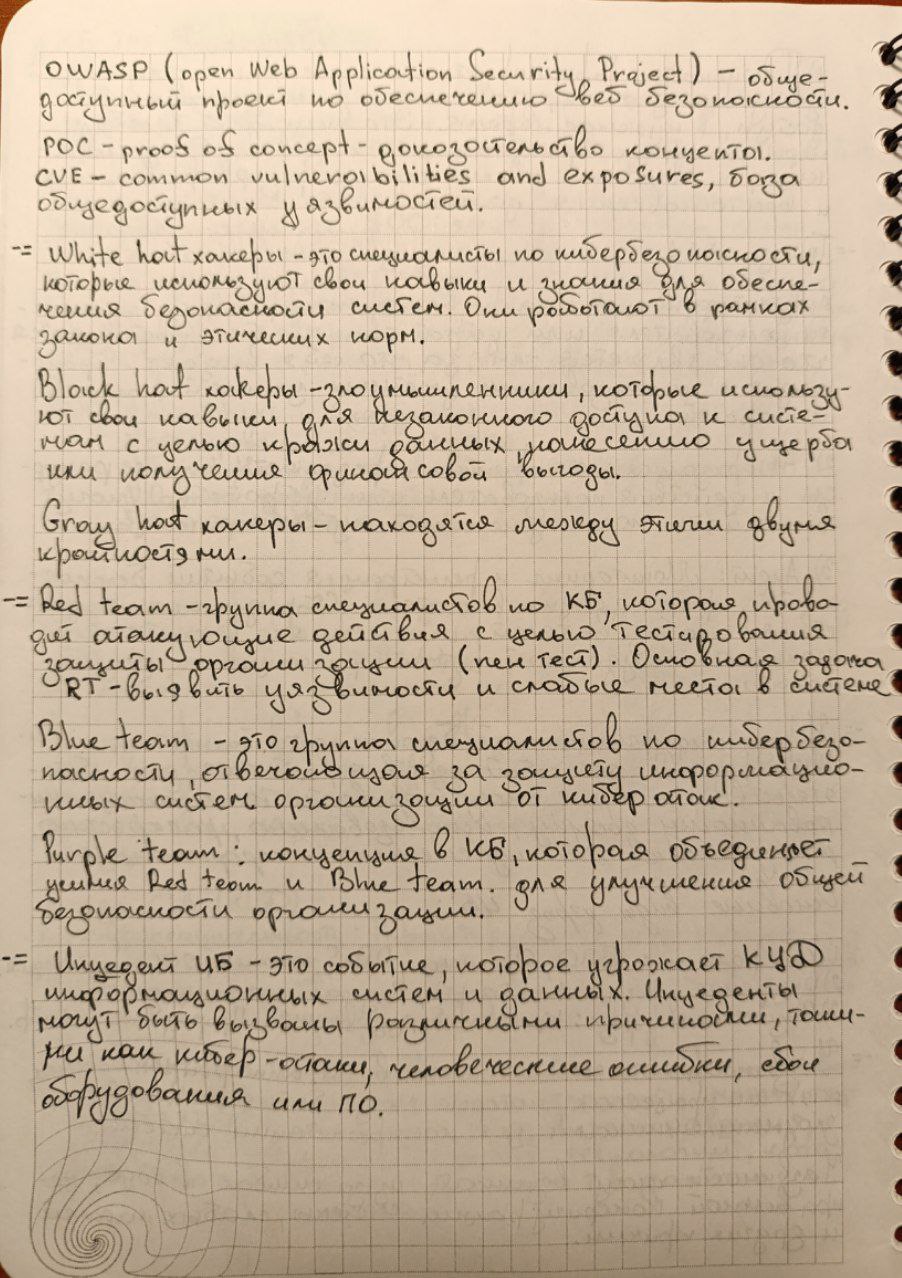 OWASP (open Web Application Security Project) – обще-
доступный проект по обеспечению веб безопасности.
POC – proof of concept – доказательство концепты.
CVE – common vulnerabilities and exposures, база
общедоступных уязвимостей.
-= White hat хакеры – это специалисты по кибербезопасности,
которые используют свои навыки и знания для обеспе-
чения безопасности систем. Они работают в рамках
закона и этических норм.
Black hat хакеры – злоумышленники, которые использу-
ют свои навыки для незаконного доступа к систе-
мам с целью кражи данных, нанесению ущерба
или получения финансовой выгоды.
Gray hat хакеры – находятся между этими двумя
крайностями.
-= Red team – группа специалистов по КБ, которая прово-
дит атакующие действия с целью тестирования
защиты организации (пен тест). Основная задача
RT – выявить уязвимости и слабые места в системе
Blue team – это группа специалистов по кибербезо-
пасности, отвечающая за защиту информацио-
нных систем организации от кибератак.
Purple team: концепция в КБ, которая объединяет
усилия Red team и Blue team. для улучшения общей
безопасности организации.
-= Инцедент ИБ – это событие, которое угрожает КЦД
информационных систем и данных. Инцеденты
могут быть вызваны различными причинами, таки-
ми как кибер-атаки, человеческие ошибки, сбои
оборудования или ПО.